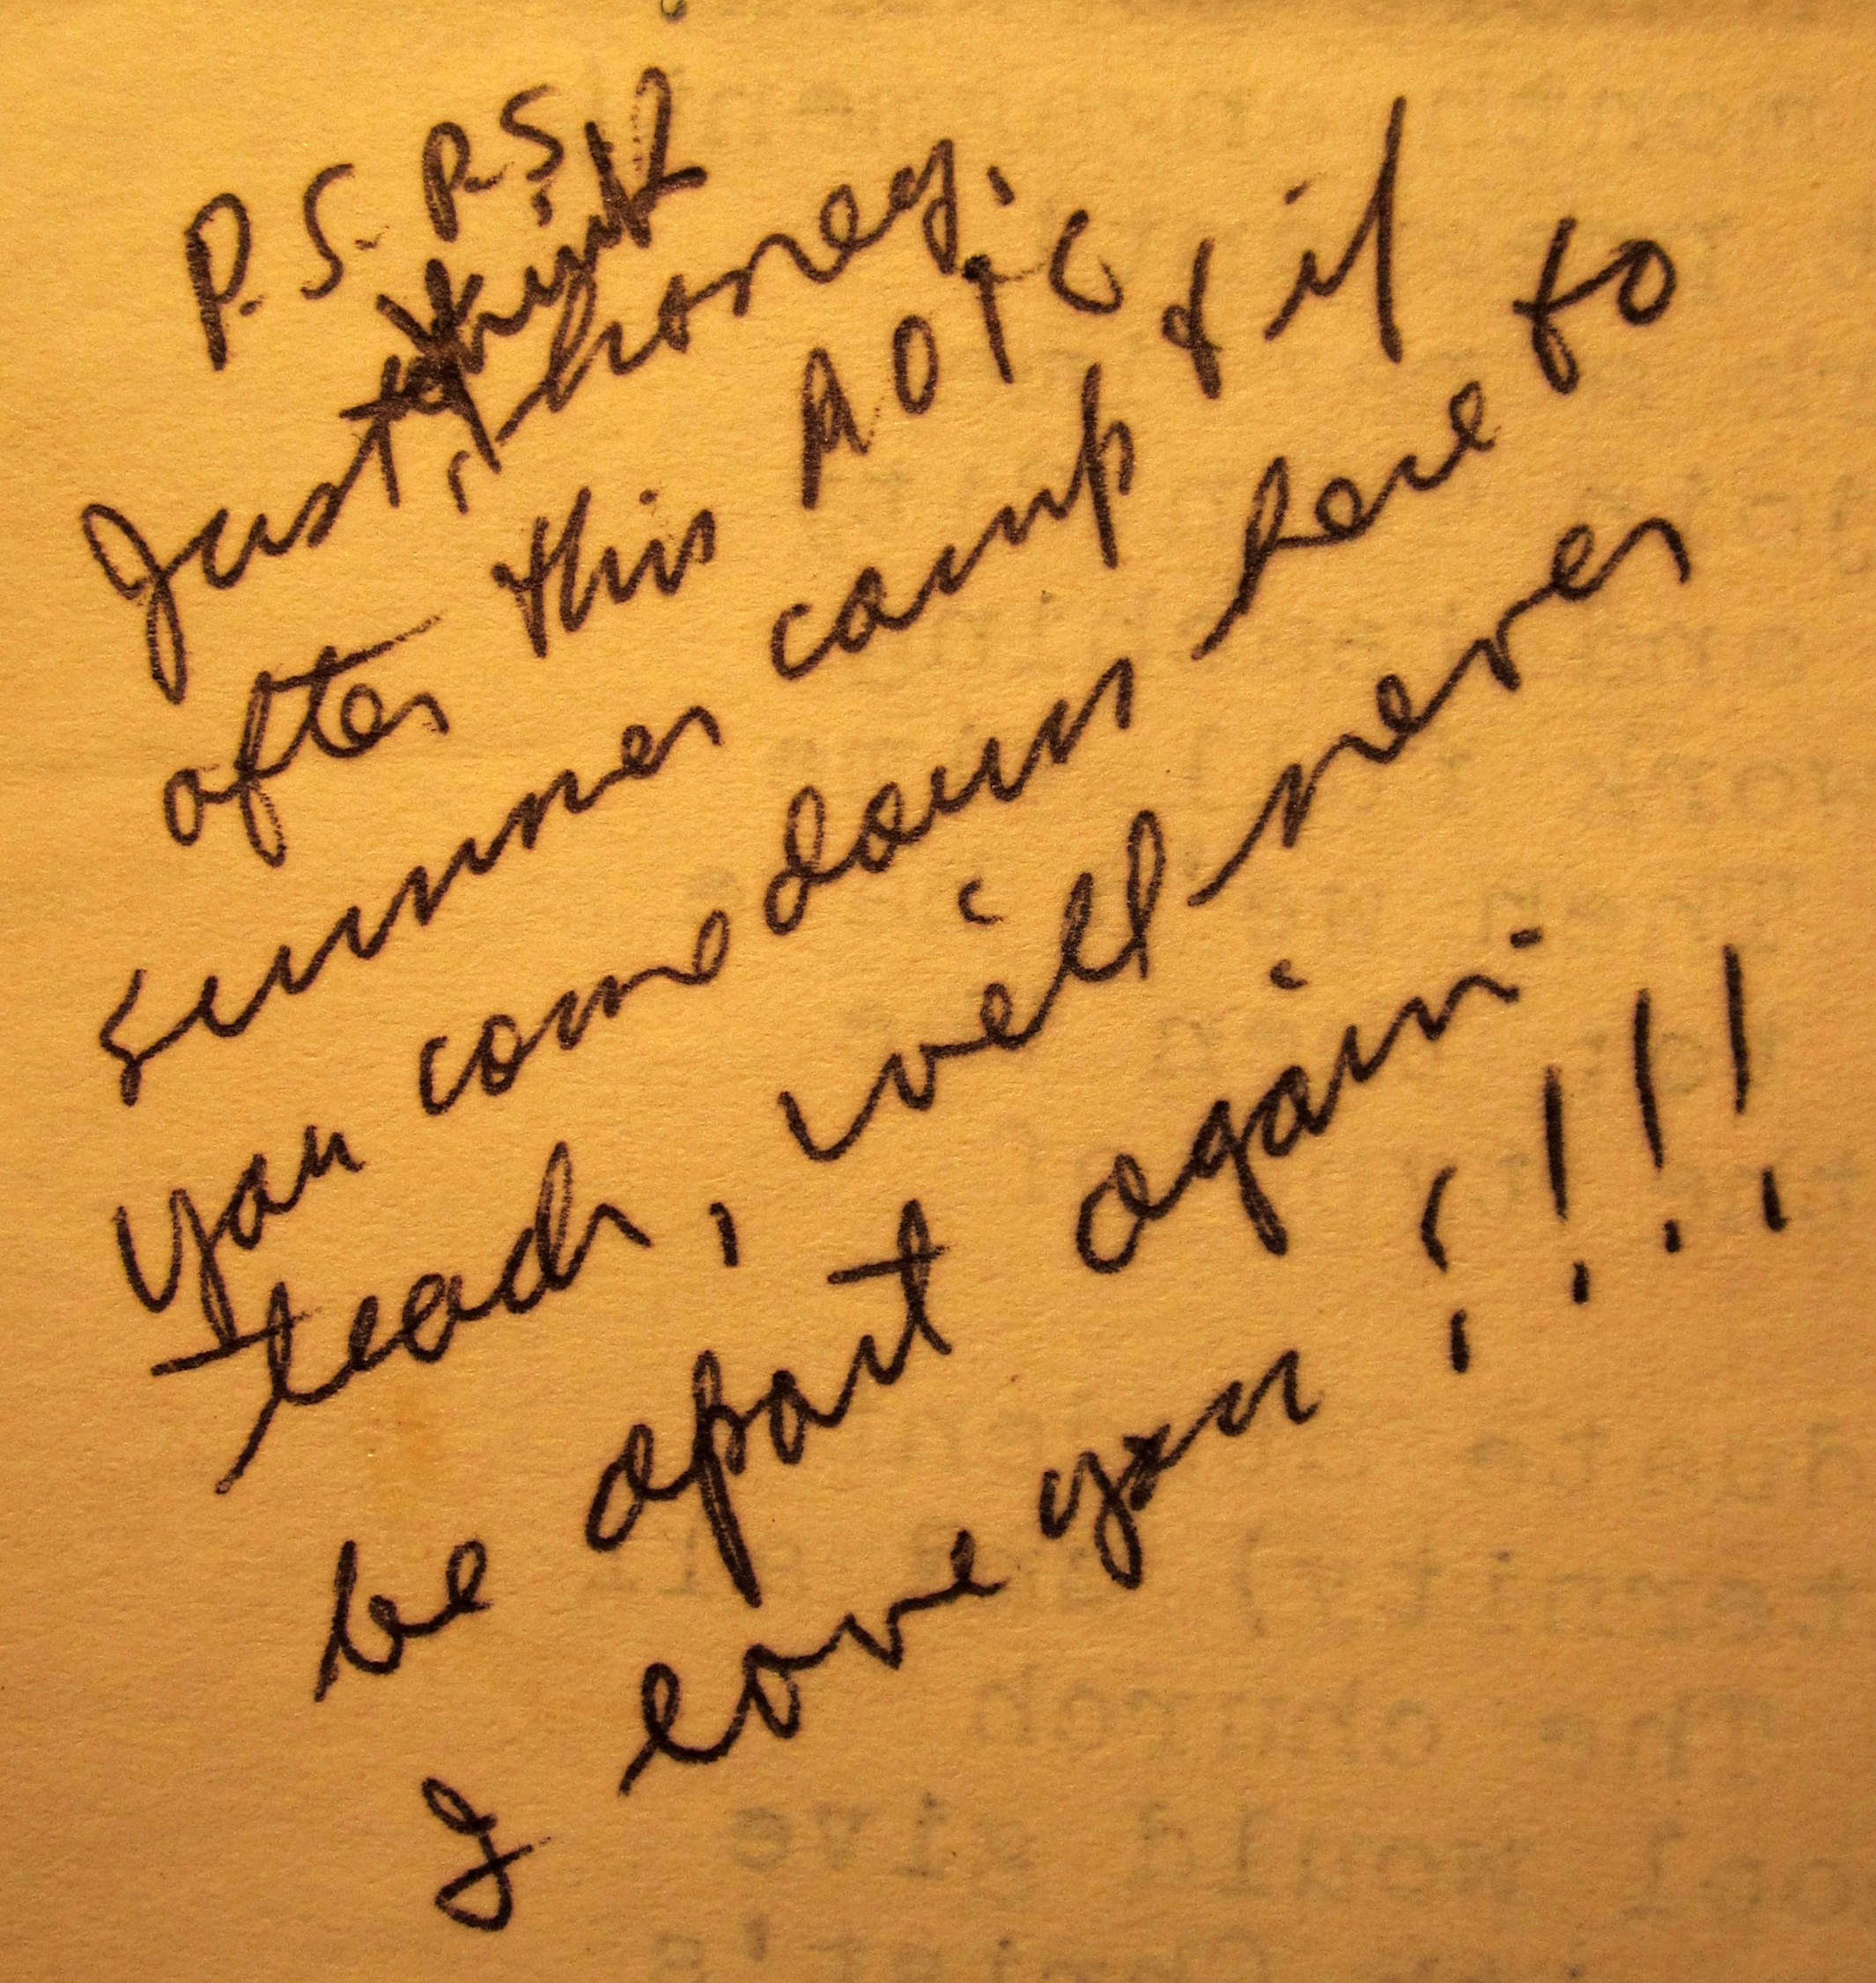 P.S. P.S.
Just think, honey,
after this ROTC
summer camp & if
you come down here to
teach, will never
be apart again.
I love you!!!!